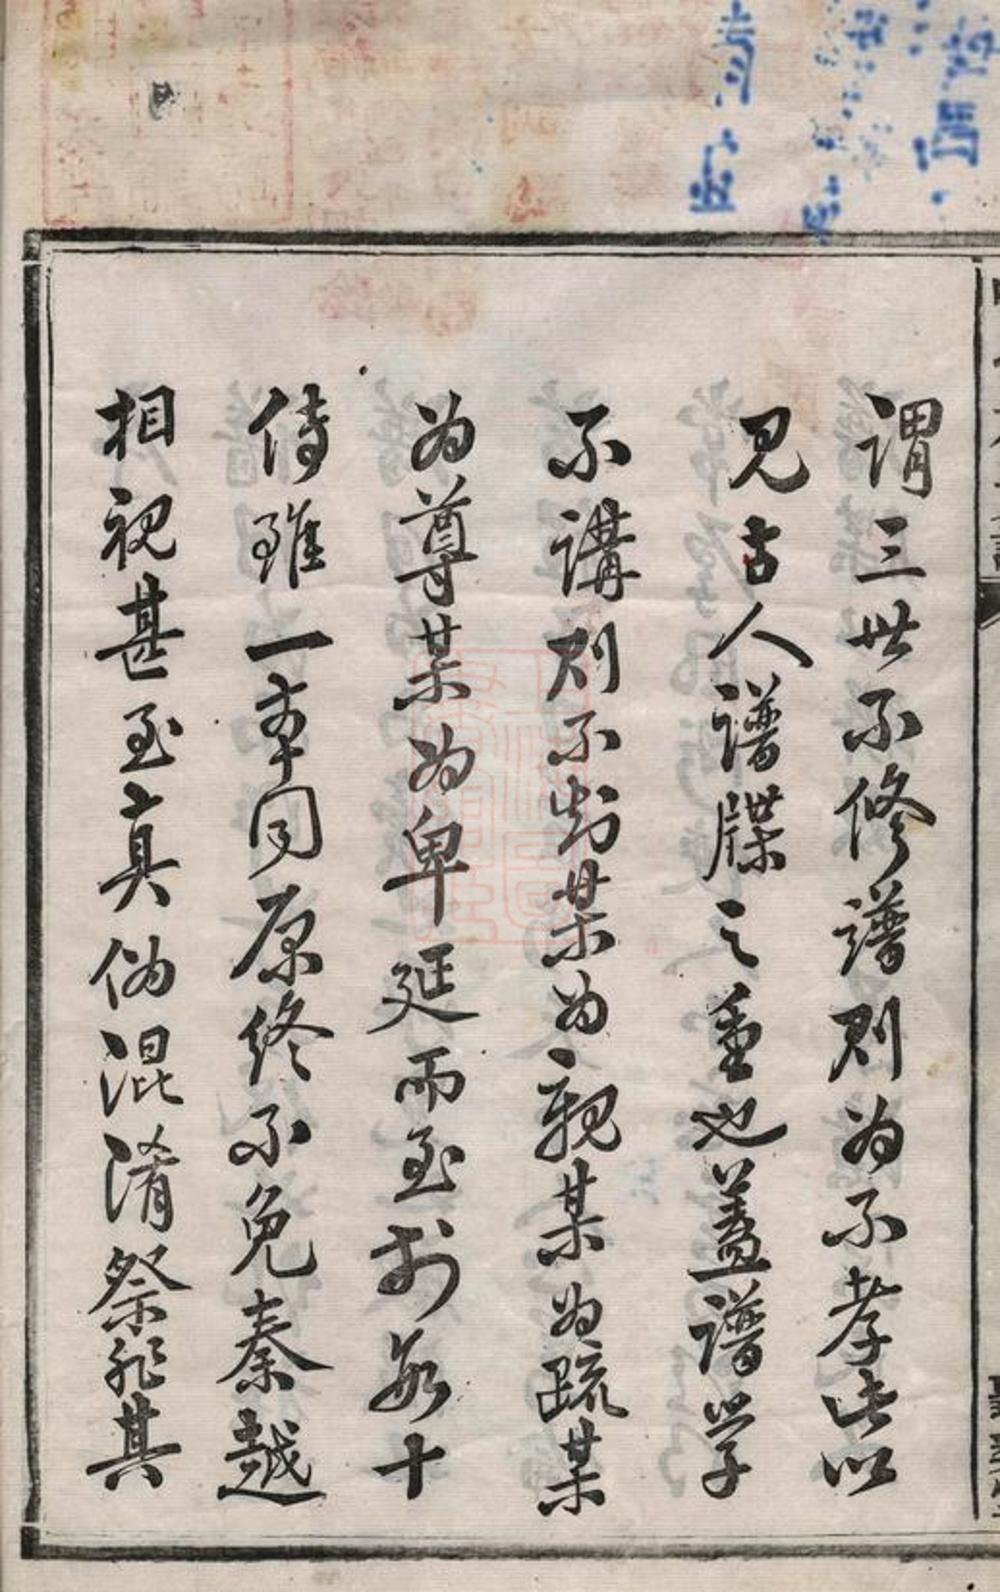 謂三世不修譜則为不孝此以
见古人譜牒之重也盖譜学
不講則不知某为親某为疏某
为尊某为卑延而至於数十
传雖一本同原终不免秦越
相視甚至真偽混淆祭非其